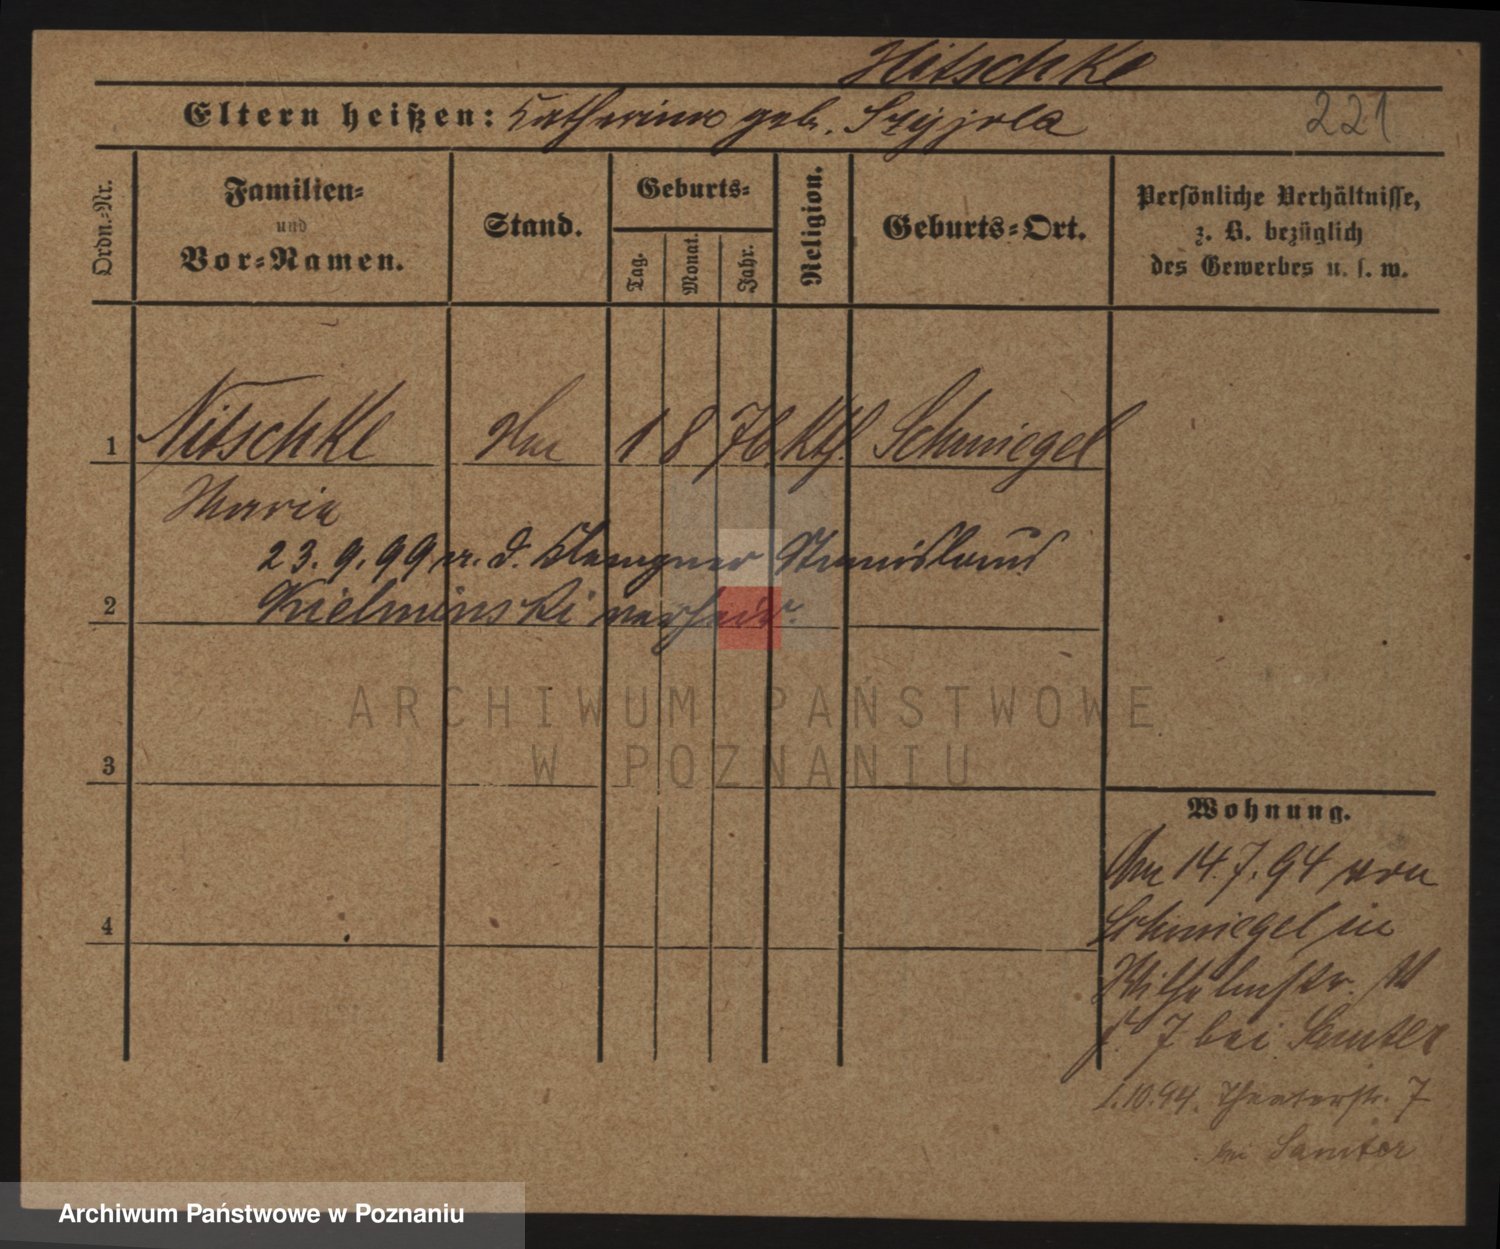 Nitschke
Eltern heißen: Katharina geb. Szyjola
221
Ordn.-Nr.
Familien-
und
Vor-Namen.
Stand.
Geburts-
Tag.
Monat.
Jahr.
Religion.
Geburts-Ort.
Persönliche Verhältnisse,
z. B. bezüglich
des Gewerbes u. s. w.
1 Nitschke 1 8 76 Kth. Schmiegel
Maria
23.9.99 m. d. Klempner Stanislaus
2 Kielminski verheir.
ARCHIWUM PAŃSTWOWE
W POZNANIU
3
Wohnung.
Am 14.7.94 von
Schmiegel in
Wilhelmstr.
7 bei Samter
4
1.10.94. Theaterstr. 7
bei Samter
Archiwum Państwowe w Poznaniu